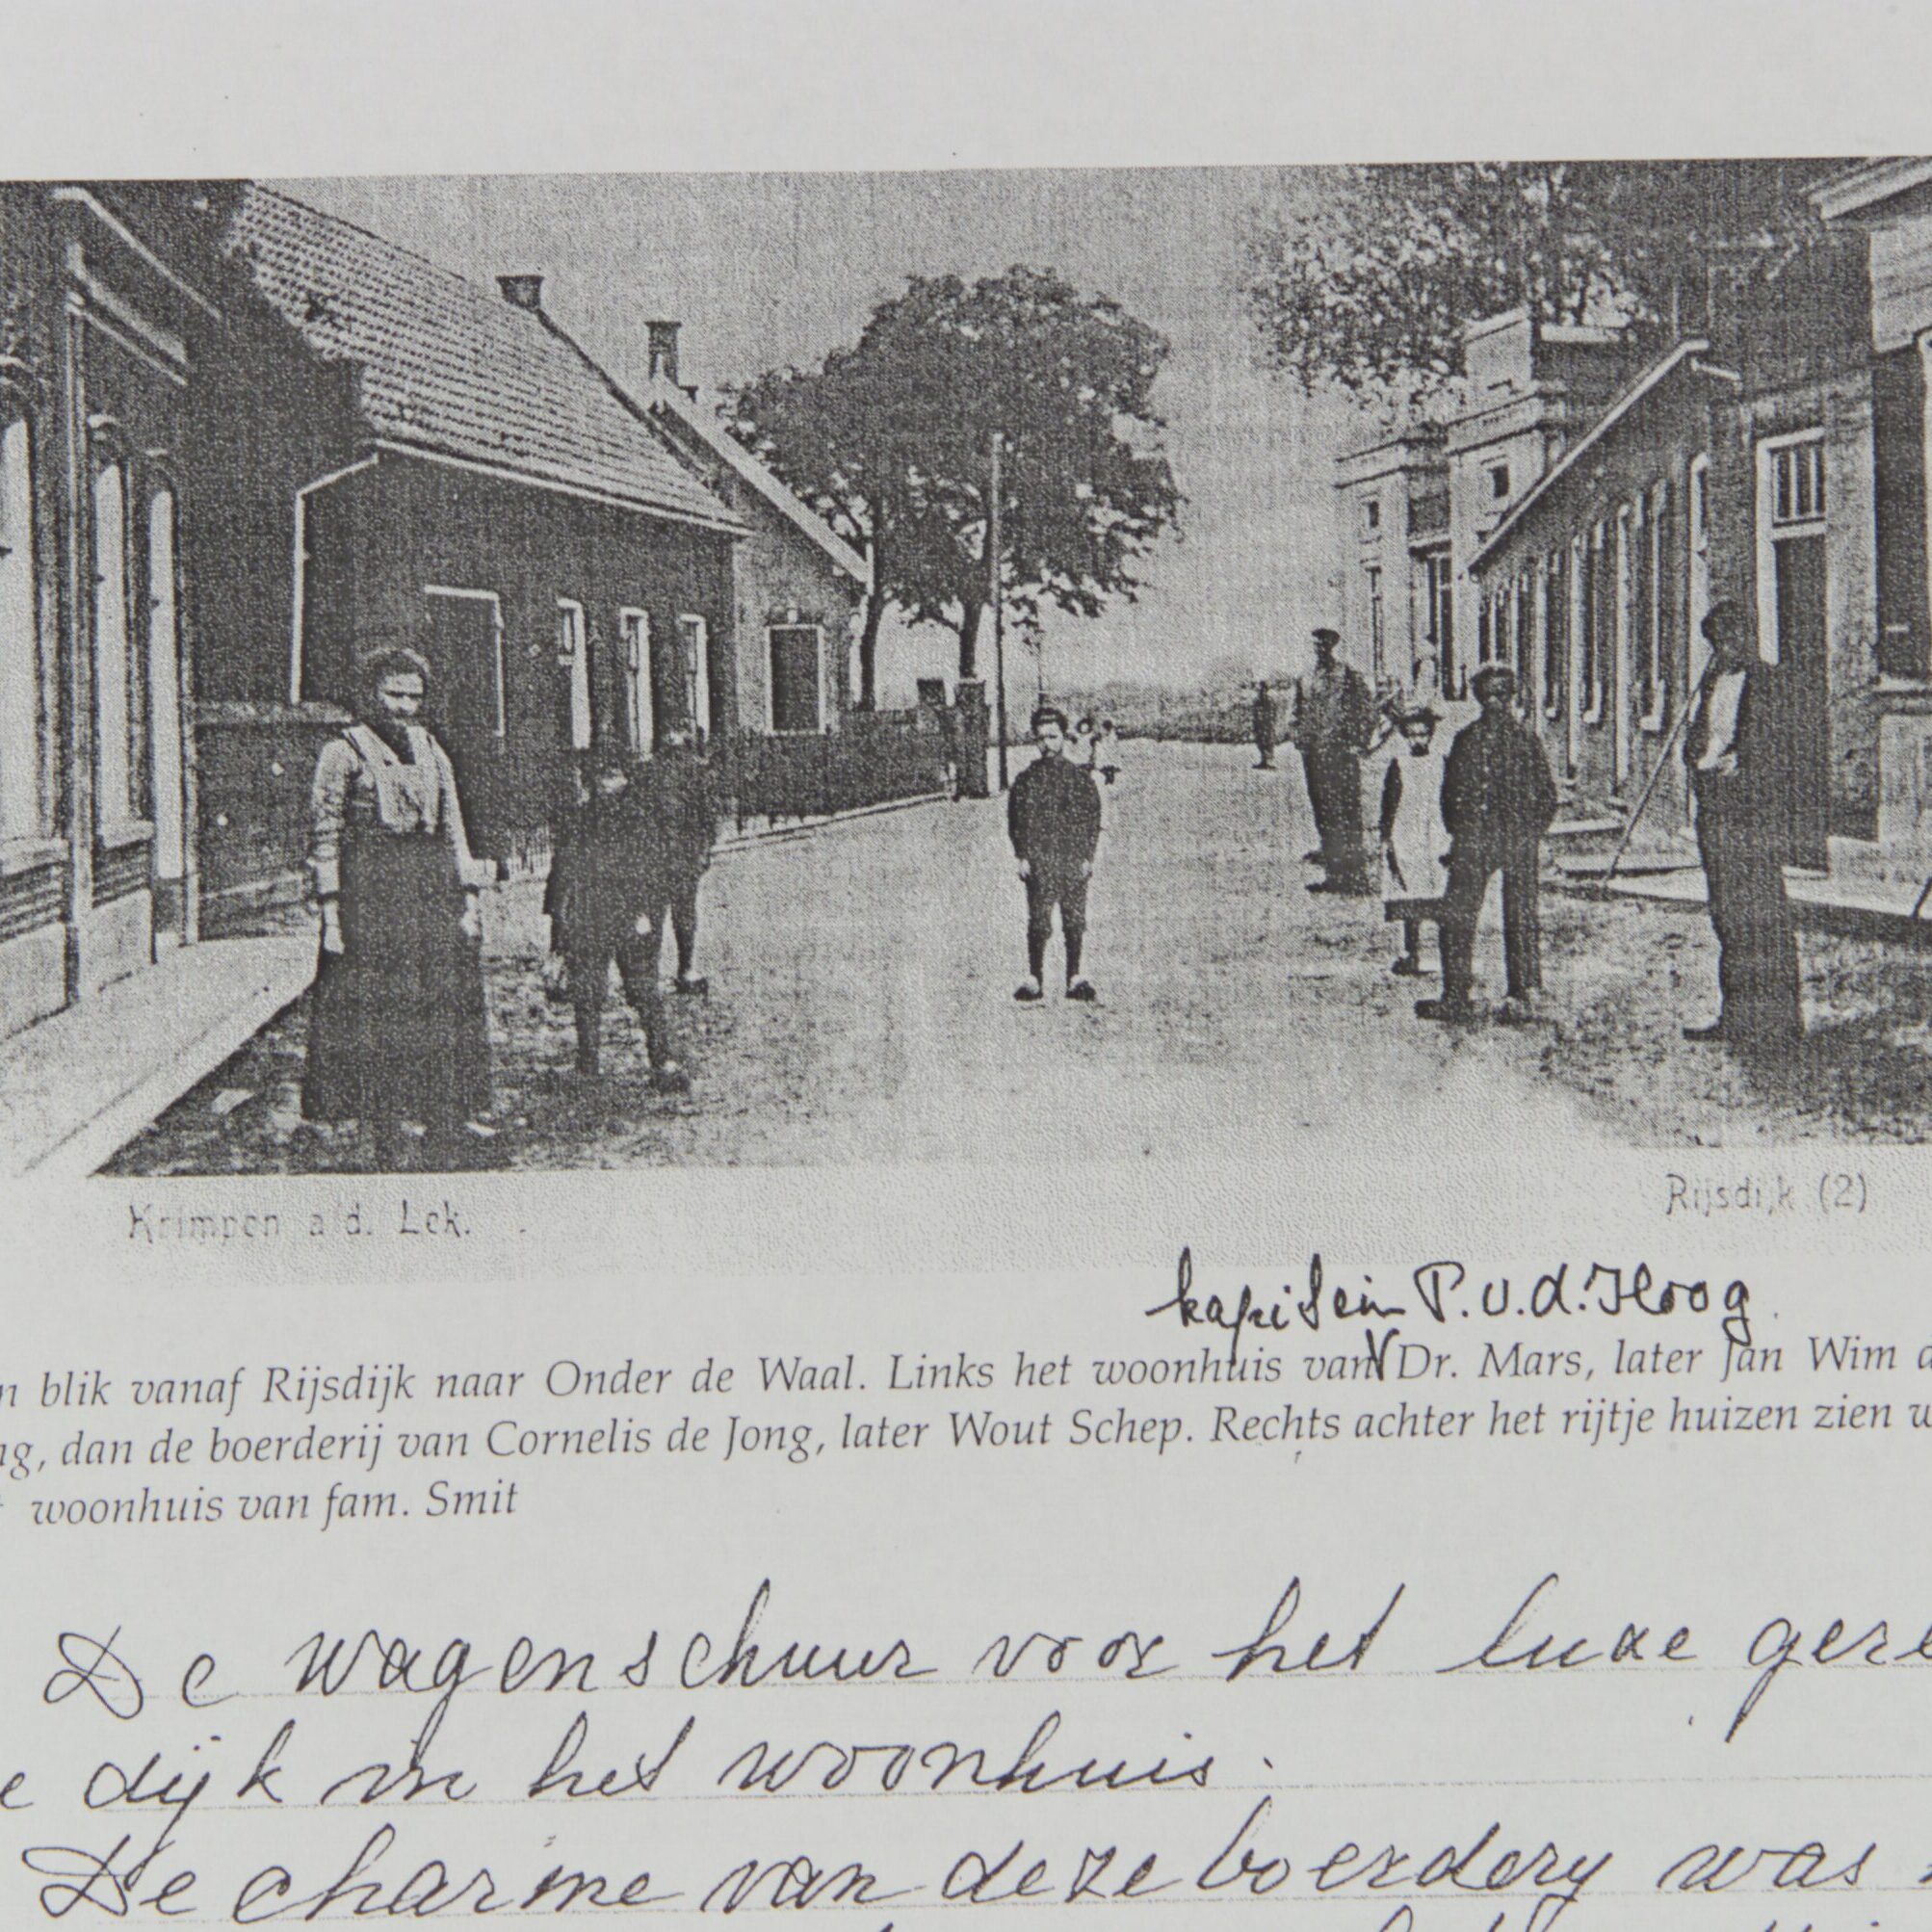 Krimpen a/d. Lek.
Rijsdijk (2)
kapitein P.v.d. Hoog
n blik vanaf Rijsdijk naar Onder de Waal. Links het woonhuis van Dr. Mars, later Jan Wim d
ng, dan de boerderij van Cornelis de Jong, later Wout Schep. Rechts achter het rijtje huizen zien w
woonhuis van fam. Smit
De wagenschuur voor het luxe gere
e dijk in het woonhuis.
De charme van deze boerdery was